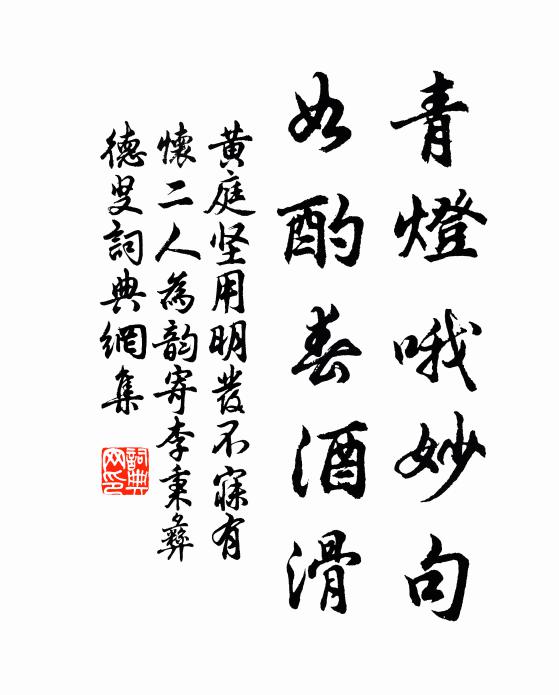 青燈哦妙句
如酌春酒滑
黄庭坚用明發不寐有
懷二人為韵寄李秉彝
德叟詞典網集
詞典网印